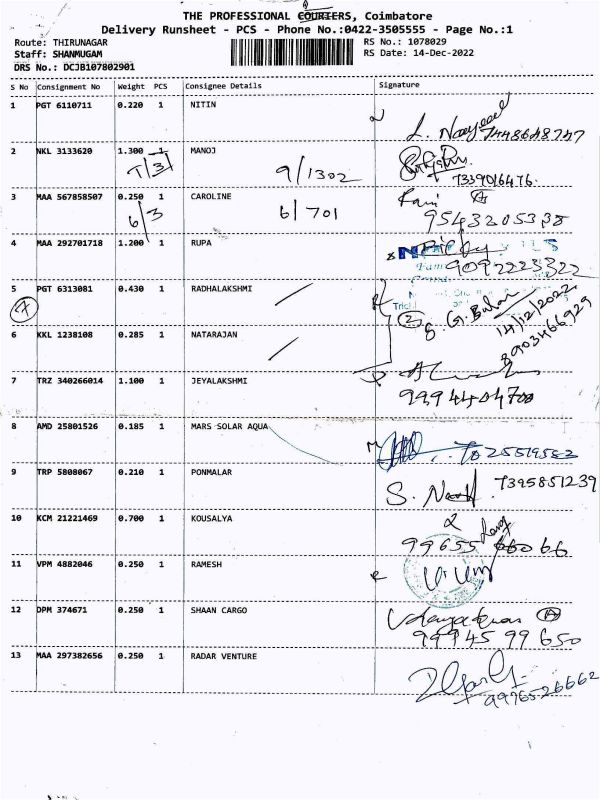 THE PROFESSIONAL COURIERS, Coimbatore
Delivery Runsheet - PCS - Phone No.:0422-3505555 - Page No.:1
Route: THIRUNAGAR
RS No.: 1078029
Staff: SHANMUGAM
RS Date: 14-Dec-2022
DRS No.: DCJB107802901
S No Consignment No Weight PCS Consignee Details Signature
1 PGT 6110711 0.220 1 NITIN
7448648747
2 NKL 3133620 1.300 1 MANOJ
7/3 9/1302
7339016476.
3 MAA 567858507 0.250 1 CAROLINE
6/3 6/701
9543205338
4 MAA 292701718 1.200 1 RUPA
9092223322
5 PGT 6313081 0.430 1 RADHALAKSHMI
14/12/2022
8903466929
6 KKL 1238108 0.285 1 NATARAJAN
7 TRZ 340266014 1.100 1 JEYALAKSHMI
9994404700
8 AMD 25801526 0.185 1 MARS SOLAR AQUA
9 TRP 5808067 0.210 1 PONMALAR
7395851239
10 KCM 21221469 0.700 1 KOUSALYA
11 VPM 4882046 0.250 1 RAMESH
12 DPM 374671 0.250 1 SHAAN CARGO
99945 99650
13 MAA 297382656 0.250 1 RADAR VENTURE
9976526662